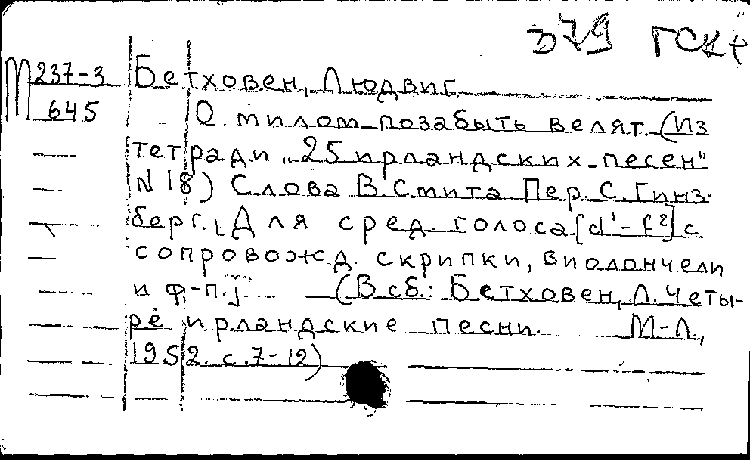 э79 ГСК
М 237-3 Бетховен, Людвиг
645 О милом позабыть велят. (Из
тетради „25 ирландских песен"
N 18) Слова В. Смита Пер. С. Гинз-
берг. [Для сред. голоса [d¹-f²] с
сопровожд. скрипки, виолончели
и ф-п.] (В сб.: Бетховен, Л. Четы-
ре ирландские песни. М-Л,
1952. с. 7-12)